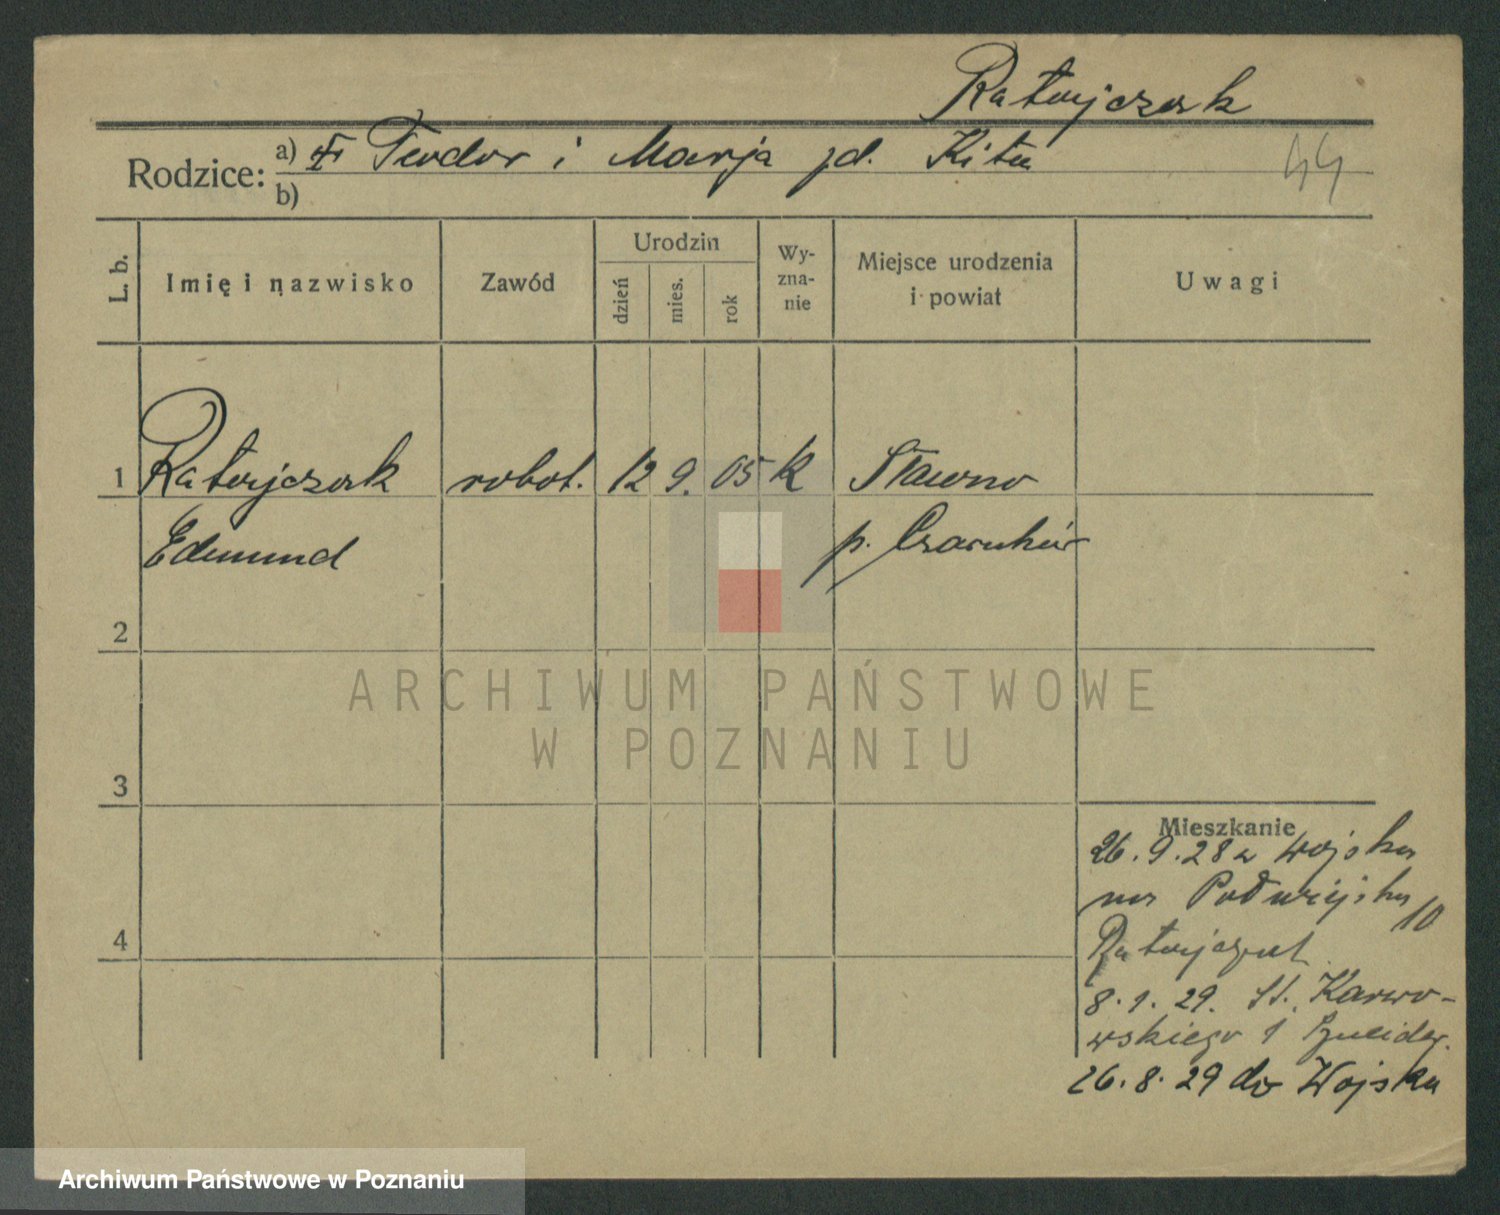 Ratajczak
Rodzice: a) Teodor i Marja zd. Kita
b)
44
L. b. Imię i nazwisko Zawód Urodzin dzień mies. rok Wy-zna-nie Miejsce urodzenia i powiat Uwagi
1 Ratajczak robot. 12 9. 05 k Sławno
Edmund p. Czarnków
2
ARCHIWUM PAŃSTWOWE
W POZNANIU
3
Mieszkanie
26.9.28 z wojska
na Podwiejska 10
4
Ratajczak
8.1.29. St. Karwo-
wskiego 1
26.8.29 do Wojska
Archiwum Państwowe w Poznaniu